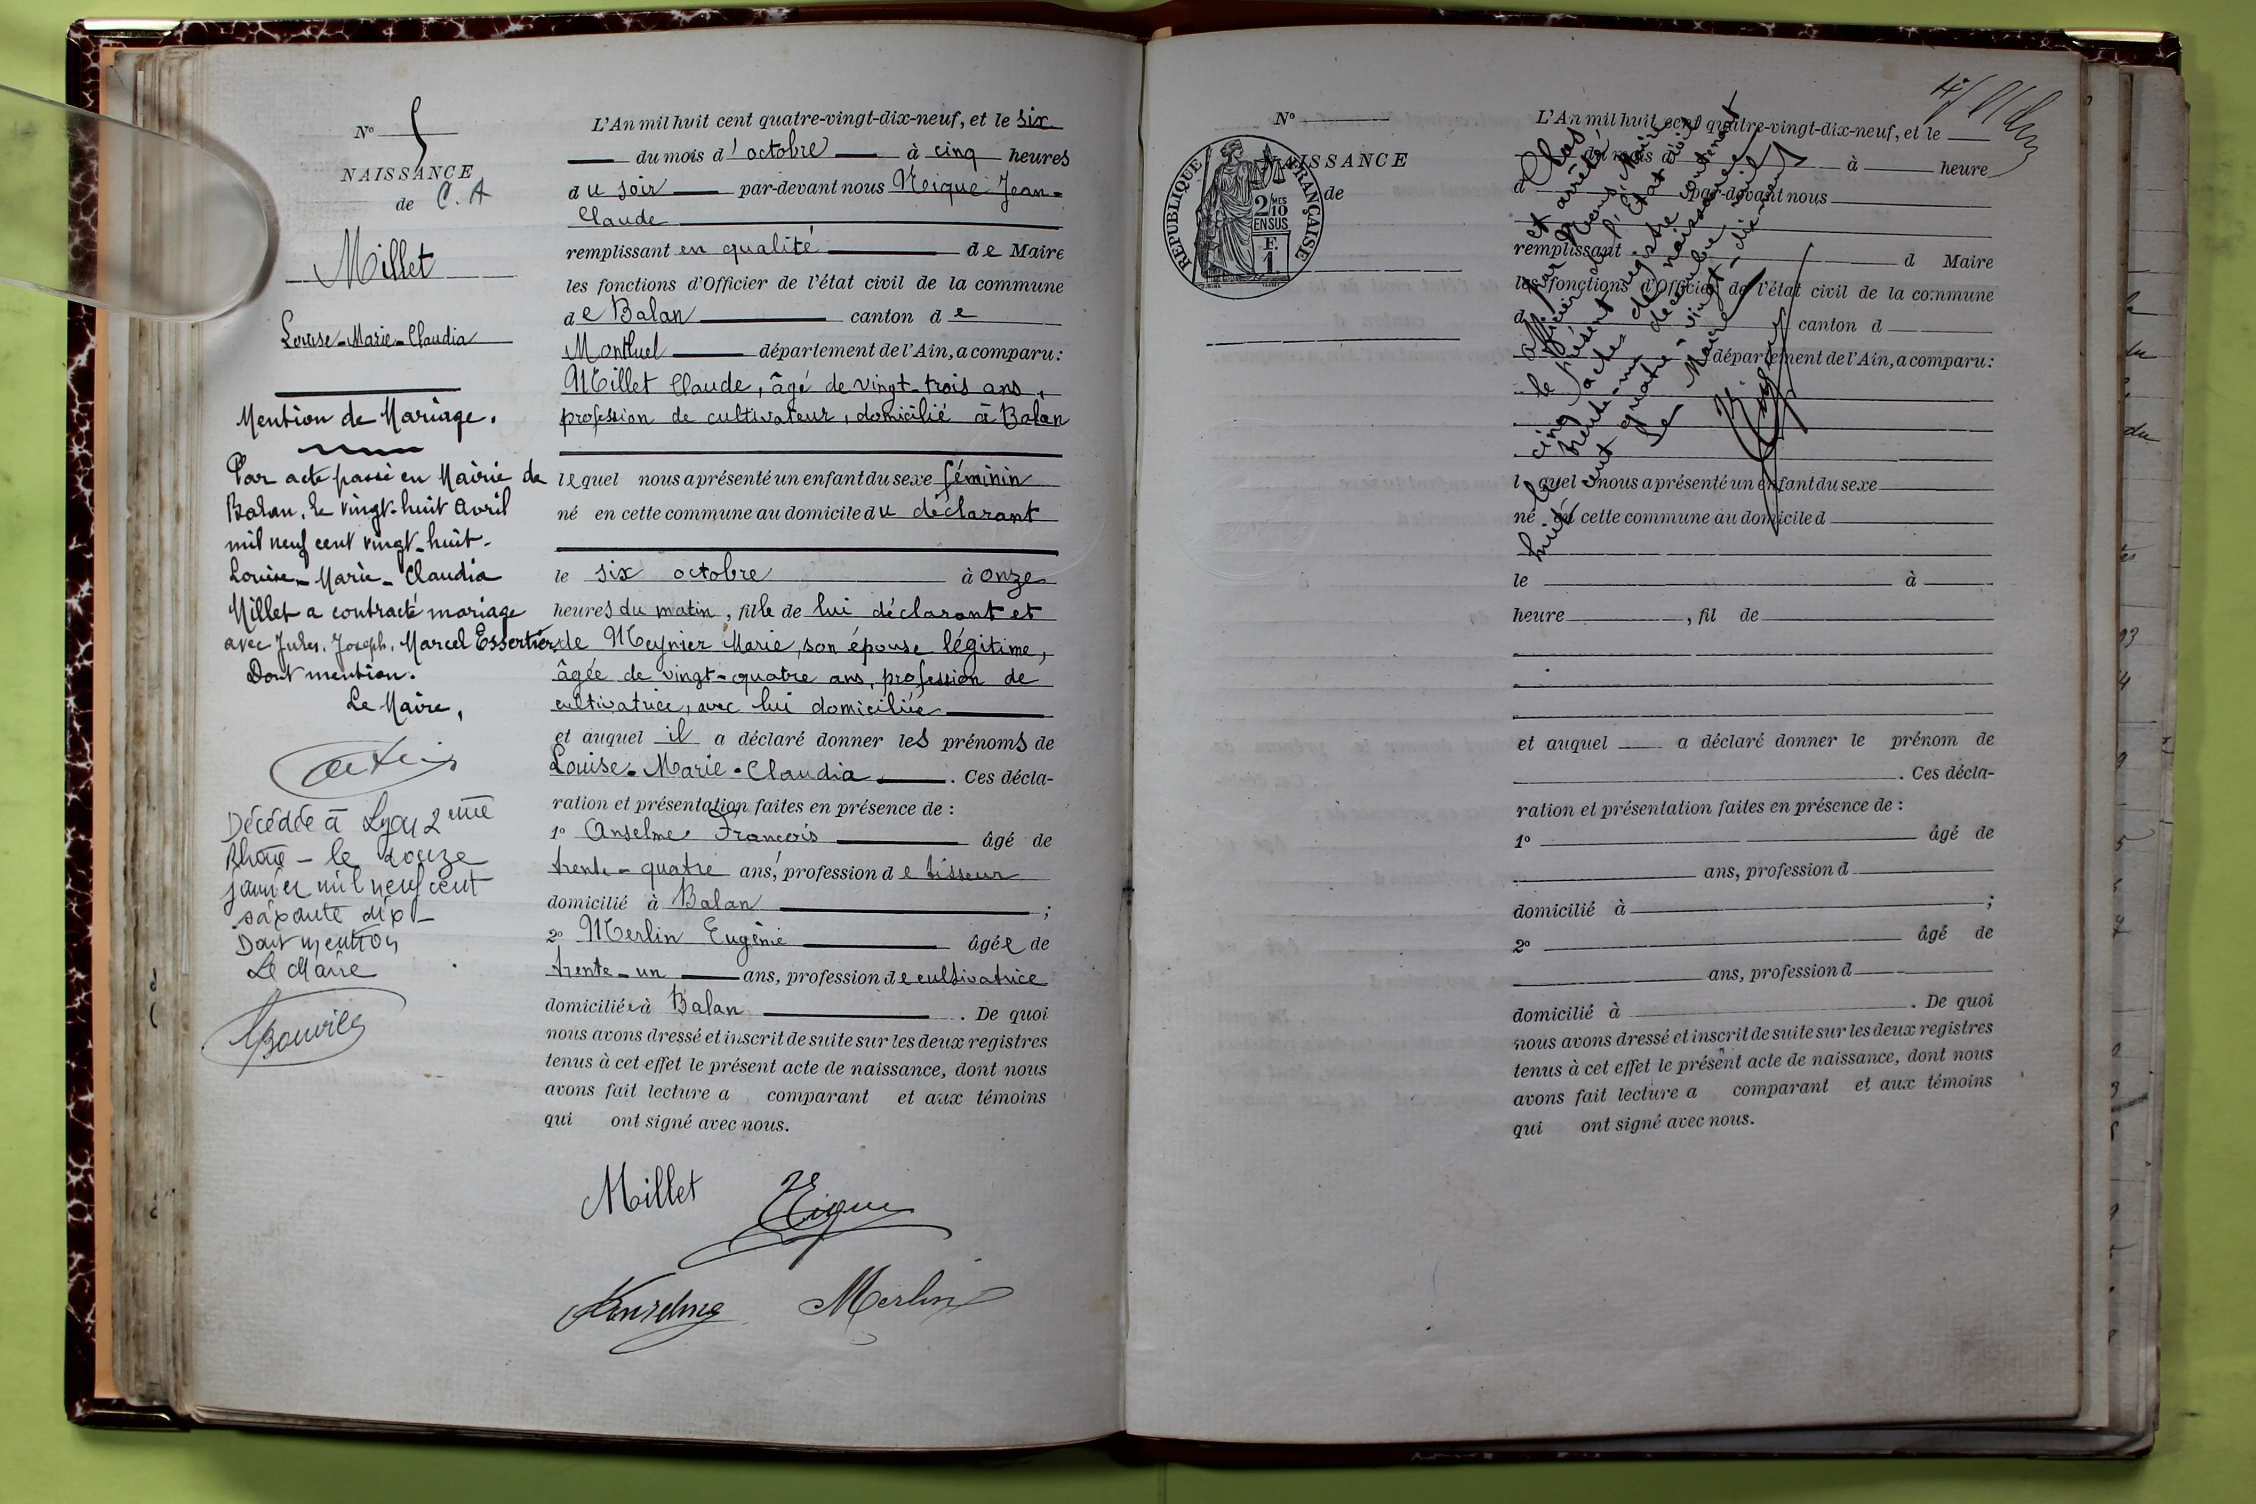 N° 5
NAISSANCE
de C. A
Millet
Louise-Marie-Claudia
Mention de Mariage.
Par acte passé en Mairie de
Balan, le vingt-huit Avril
mil neuf cent vingt-huit-
Louise-Marie-Claudia
Millet a contracté mariage
avec Jules, Joseph, Marcel Essertier.
Dont mention.
Le Maire,
Décédée à Lyon 2ème
Rhône - le douze
janvier mil neuf cent
soixante dix -
Dont mention
Le Maire
L'An mil huit cent quatre-vingt-dix-neuf, et le six
du mois d'octobre à cinq heures
du soir par-devant nous Neique Jean-
Claude
remplissant en qualité de Maire
les fonctions d'Officier de l'état civil de la commune
de Balan canton de
Montluel département de l'Ain, a comparu:
Millet Claude, âgé de vingt-trois ans,
profession de cultivateur, domicilié à Balan
lequel nous a présenté un enfant du sexe féminin
né en cette commune au domicile du déclarant
le six octobre à onze
heures du matin, fille de lui déclarant et
de Meynier Marie, son épouse légitime,
âgée de vingt-quatre ans, profession de
cultivatrice, avec lui domiciliée
et auquel il a déclaré donner les prénoms de
Louise-Marie-Claudia. Ces décla-
ration et présentation faites en présence de :
1° Anselme François âgé de
trente-quatre ans, profession de tisseur
domicilié à Balan ;
2° Merlin Eugénie âgée de
trente-un ans, profession de cultivatrice
domiciliée à Balan. De quoi
nous avons dressé et inscrit de suite sur les deux registres
tenus à cet effet le présent acte de naissance, dont nous
avons fait lecture a comparant et aux témoins
qui ont signé avec nous.
Millet Neique
Anselme Merlin
N°
NAISSANCE
de
RÉPUBLIQUE FRANÇAISE
2/10
MES
EN SUS
F.
1
L'An mil huit cent quatre-vingt-dix-neuf, et le
du mois d à heure
d par-devant nous
remplissant d Maire
les fonctions d'Officier de l'état civil de la commune
d canton d
département de l'Ain, a comparu:
l quel nous a présenté un enfant du sexe
né en cette commune au domicile d
le à
heure , fil de
et auquel a déclaré donner le prénom de
. Ces décla-
ration et présentation faites en présence de :
1° âgé de
ans, profession d
domicilié à ;
2° âgé de
ans, profession d
domicilié à . De quoi
nous avons dressé et inscrit de suite sur les deux registres
tenus à cet effet le présent acte de naissance, dont nous
avons fait lecture a comparant et aux témoins
qui ont signé avec nous.
Clos
et arrêté
par Nous, Maire
officier de l'État civil
le présent registre contenant
cinq actes de naissance
le trente-un décembre mil
huit cent quatre-vingt-dix-neuf
Le Maire